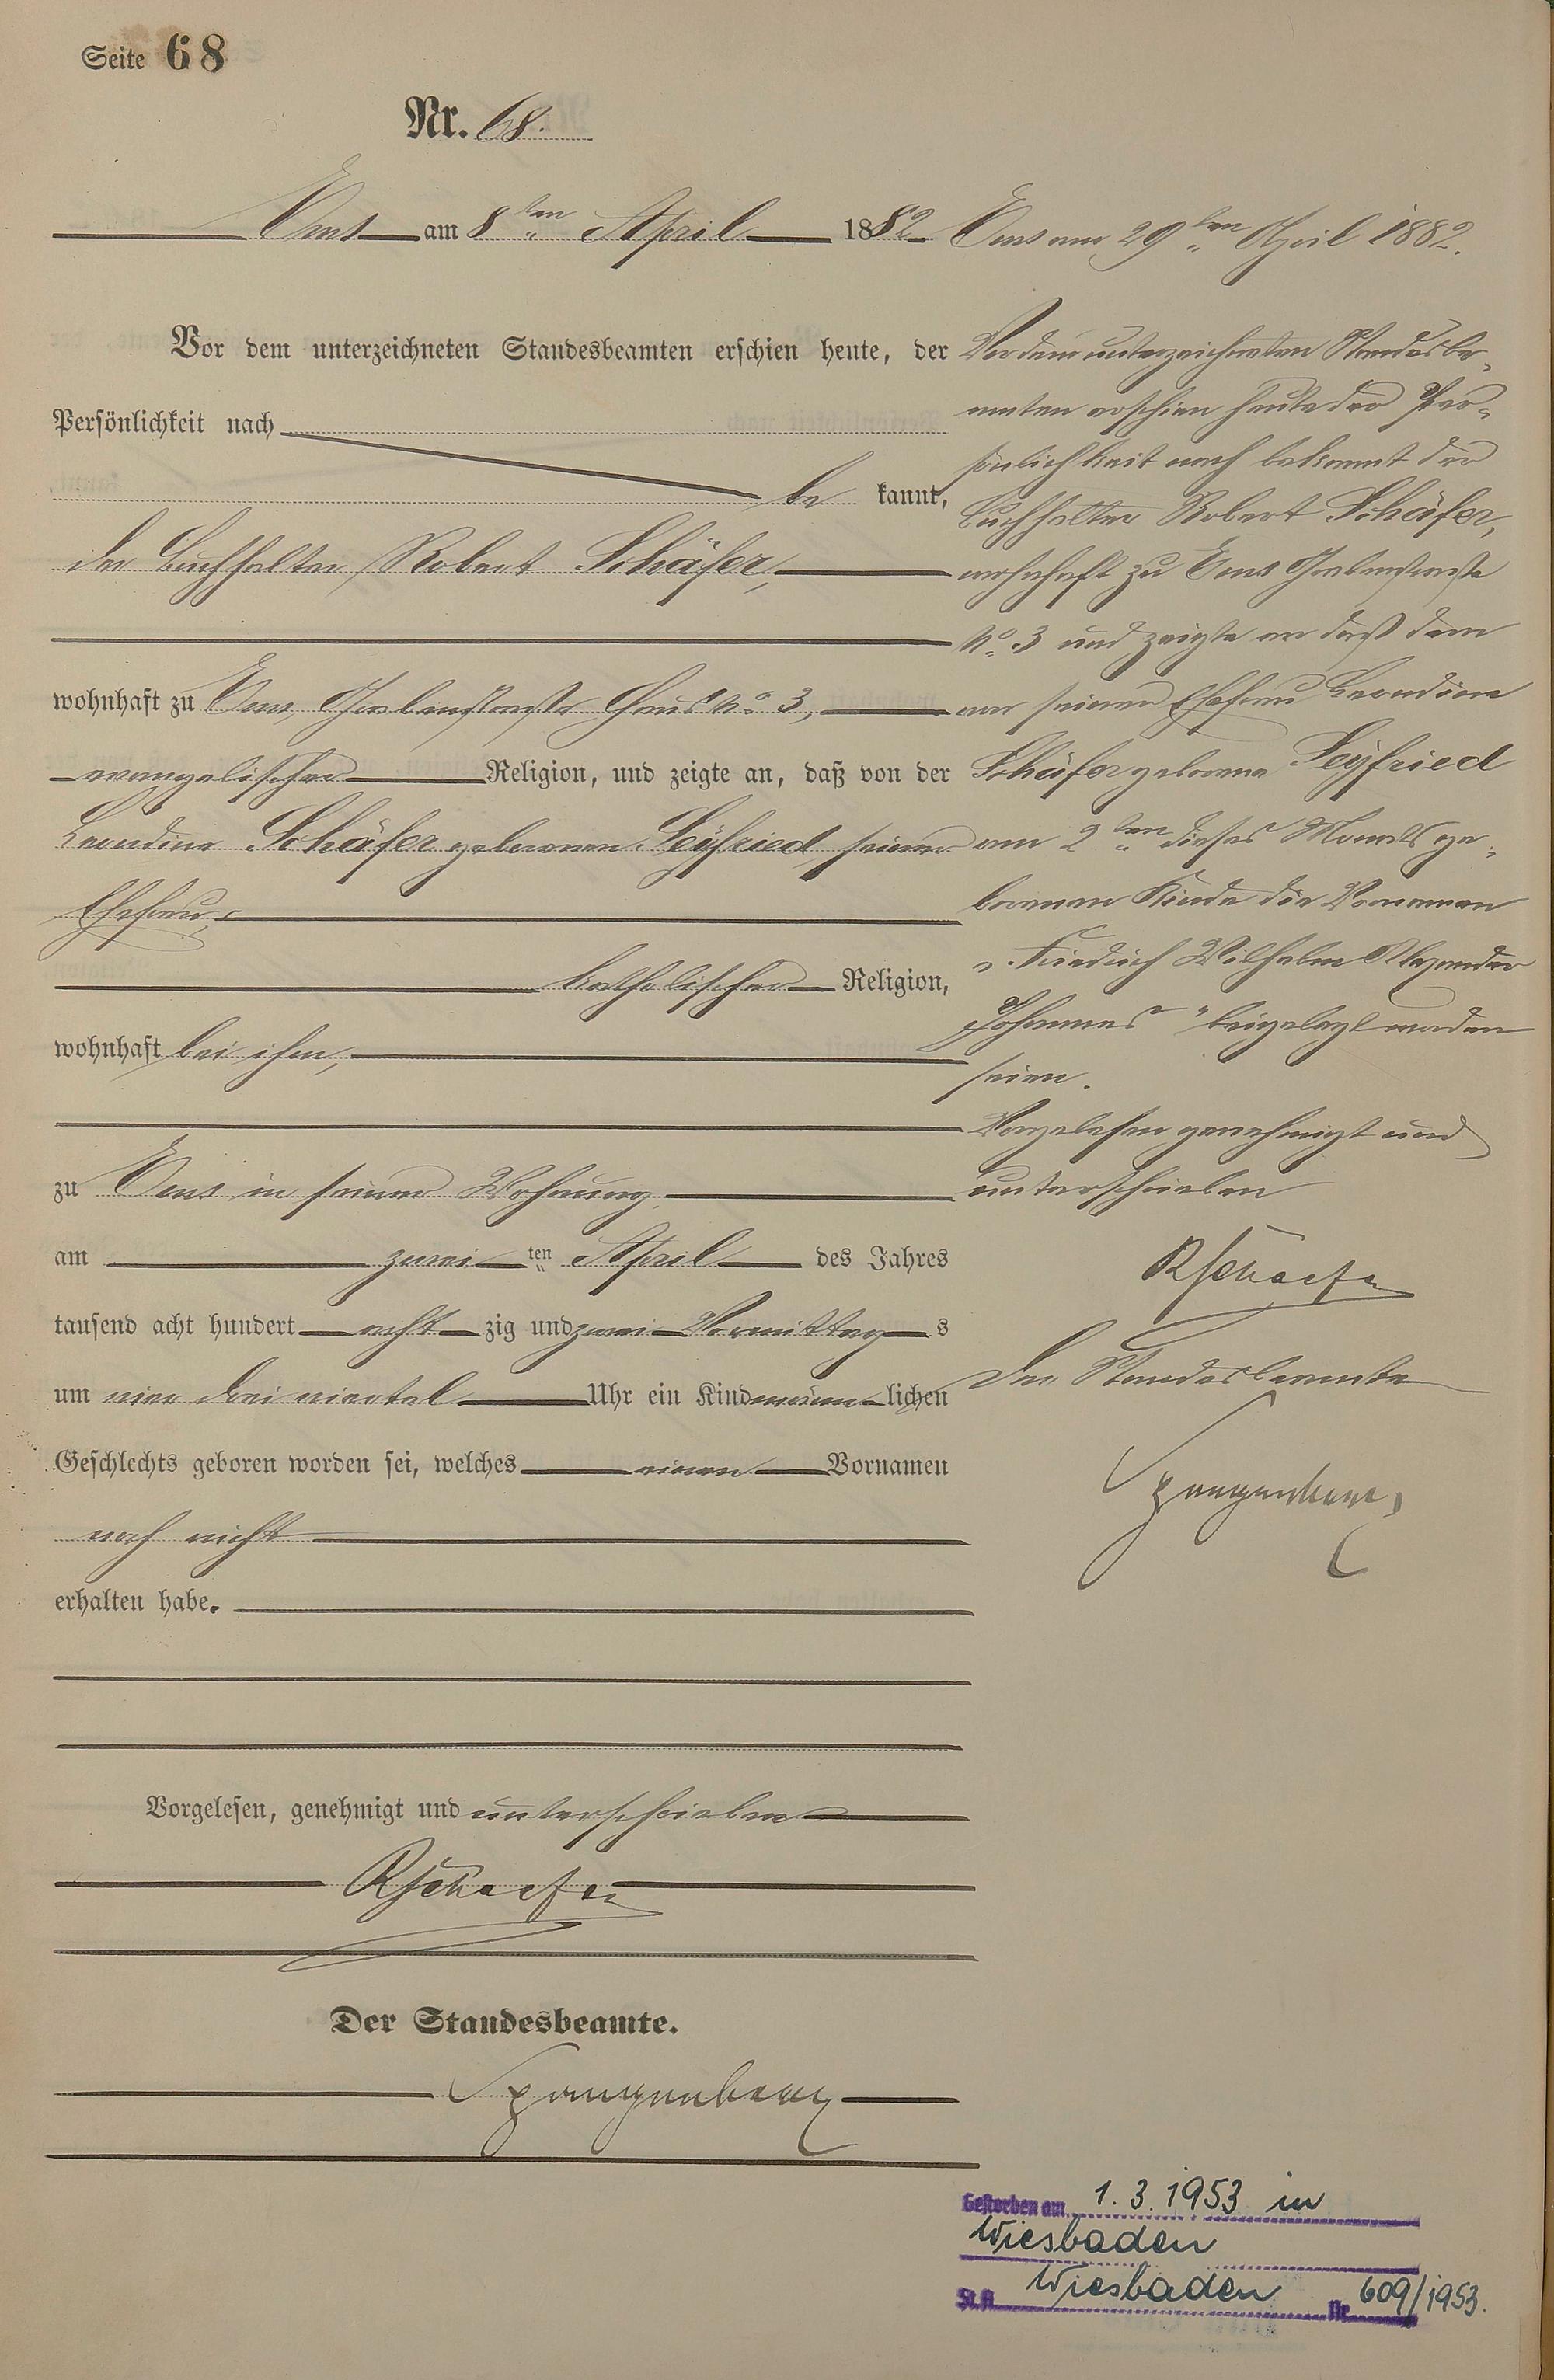 Seite 68
Nr. 68.
Ems am 8ten April 1882
Vor dem unterzeichneten Standesbeamten erschien heute, der
Persönlichkeit nach
be kannt,
der Buchhalter Robert Schäfer,
wohnhaft zu Ems, Grabenstraße Haus No 3,
evangelischer Religion, und zeigte an, daß von der
Leondine Schäfer geborenen Seyfried seiner
Ehefrau,
katholischer Religion,
wohnhaft bei ihm,
zu Ems in seiner Wohnung
am zwei ten April des Jahres
tausend acht hundert acht zig und zwei Vormittag s
um vier drei viertel Uhr ein Kind männ lichen
Geschlechts geboren worden sei, welches einen Vornamen
noch nicht
erhalten habe.
Vorgelesen, genehmigt und unterschrieben
RSchaefer
Der Standesbeamte.
Spangenberg
Ems am 29ten April 1882.
Vor dem unterzeichneten Standesbe-
amten erschien heute der Per-
sönlichkeit nach bekannt der
Buchhalter Robert Schäfer,
wohnhaft zu Ems Grabenstraße
No. 3 und zeigte an daß dem
von seiner Ehefrau Leondine
Schäfer geborene Seyfried
am 2ten dieses Monats ge-
borenen Kinde die Vornamen
"Friedrich Wilhelm Alexander
Johannes" beigelegt worden
seien.
Vorgelesen genehmigt und
unterschrieben
RSchaefer
Der Standesbeamte
Spangenberg
Gestorben am 1.3.1953 in
Wiesbaden
St.A. Wiesbaden Nr. 609/1953.